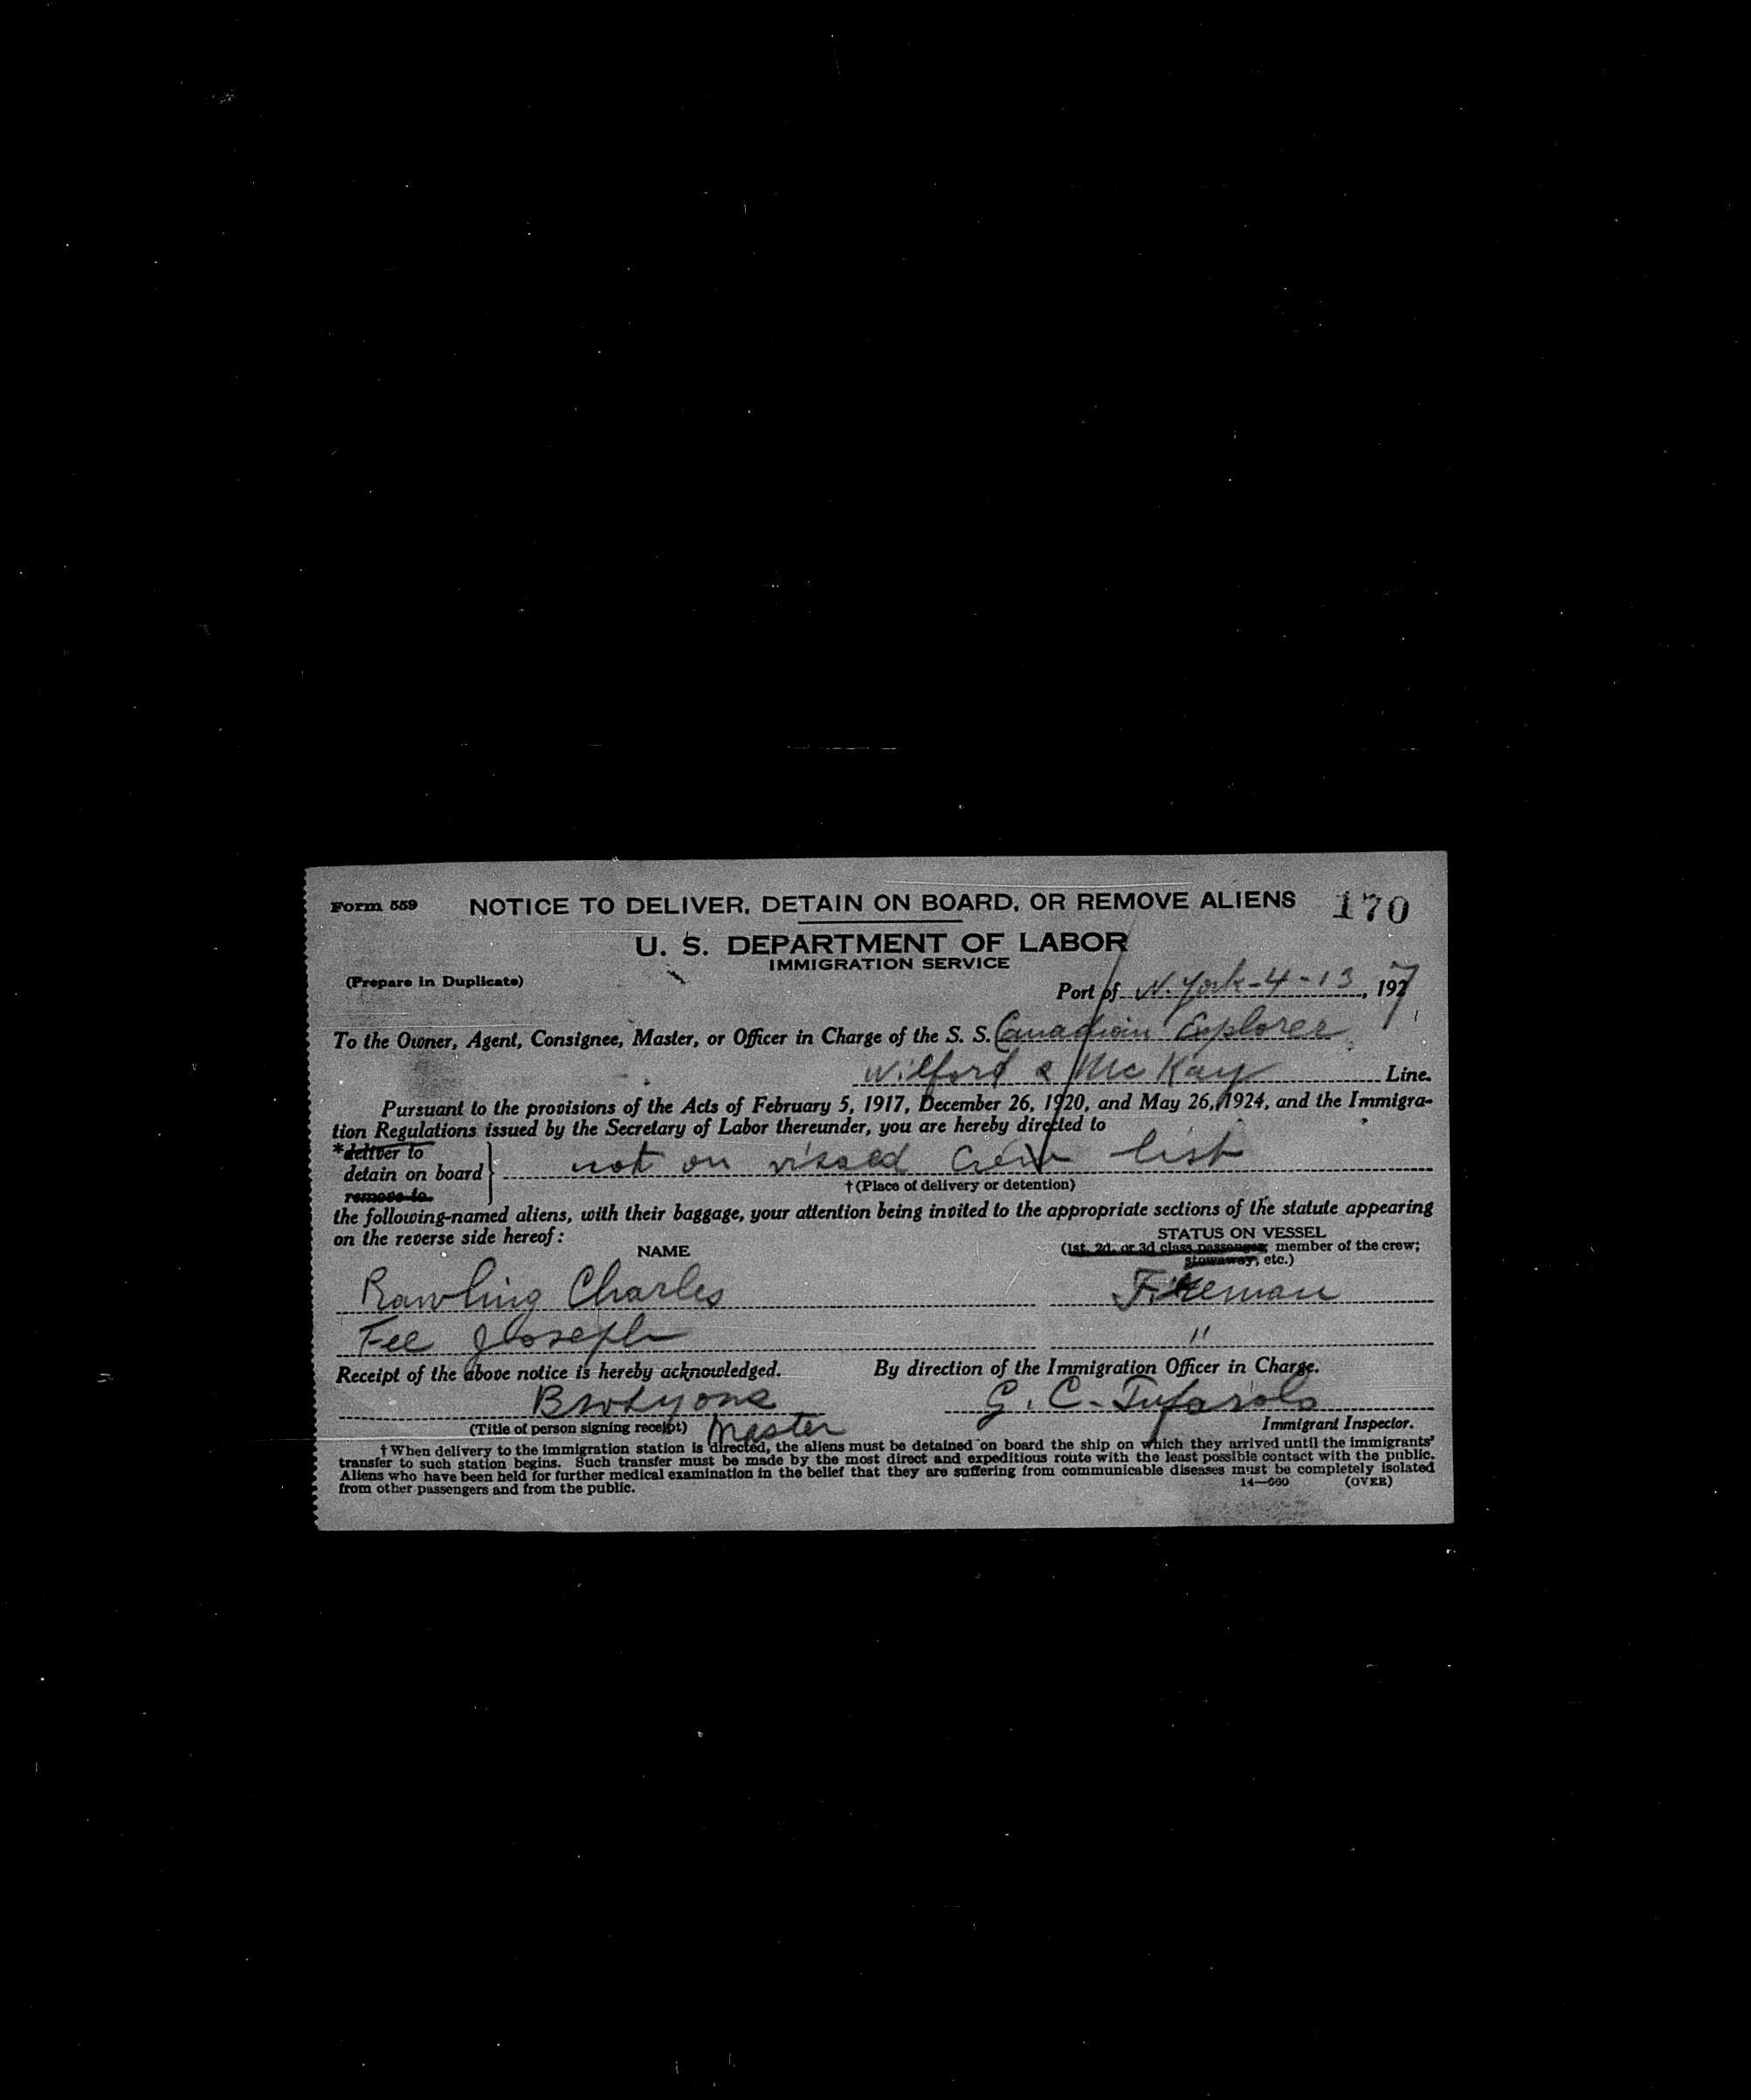 Form 559 NOTICE TO DELIVER, DETAIN ON BOARD, OR REMOVE ALIENS 170
U. S. DEPARTMENT OF LABOR
IMMIGRATION SERVICE
(Prepare in Duplicate)
Port of N. York-4-13, 1927
To the Owner, Agent, Consignee, Master, or Officer in Charge of the S. S. Canadian Explorer
Wilford & McKay Line.
Pursuant to the provisions of the Acts of February 5, 1917, December 26, 1920, and May 26, 1924, and the Immigra-
tion Regulations issued by the Secretary of Labor thereunder, you are hereby directed to
*deliver to
detain on board } not on visaed crew list
remove to
†(Place of delivery or detention)
the following-named aliens, with their baggage, your attention being invited to the appropriate sections of the statute appearing
on the reverse side hereof:
STATUS ON VESSEL
NAME (1st, 2d, or 3d class passenger; member of the crew;
stowaway, etc.)
Rawling Charles Fireman
Fee Joseph "
Receipt of the above notice is hereby acknowledged. By direction of the Immigration Officer in Charge.
G. C.
(Title of person signing receipt) Master Immigrant Inspector.
† When delivery to the immigration station is directed, the aliens must be detained on board the ship on which they arrived until the immigrants'
transfer to such station begins. Such transfer must be made by the most direct and expeditious route with the least possible contact with the public.
Aliens who have been held for further medical examination in the belief that they are suffering from communicable diseases must be completely isolated
from other passengers and from the public. 14—560 (OVER)